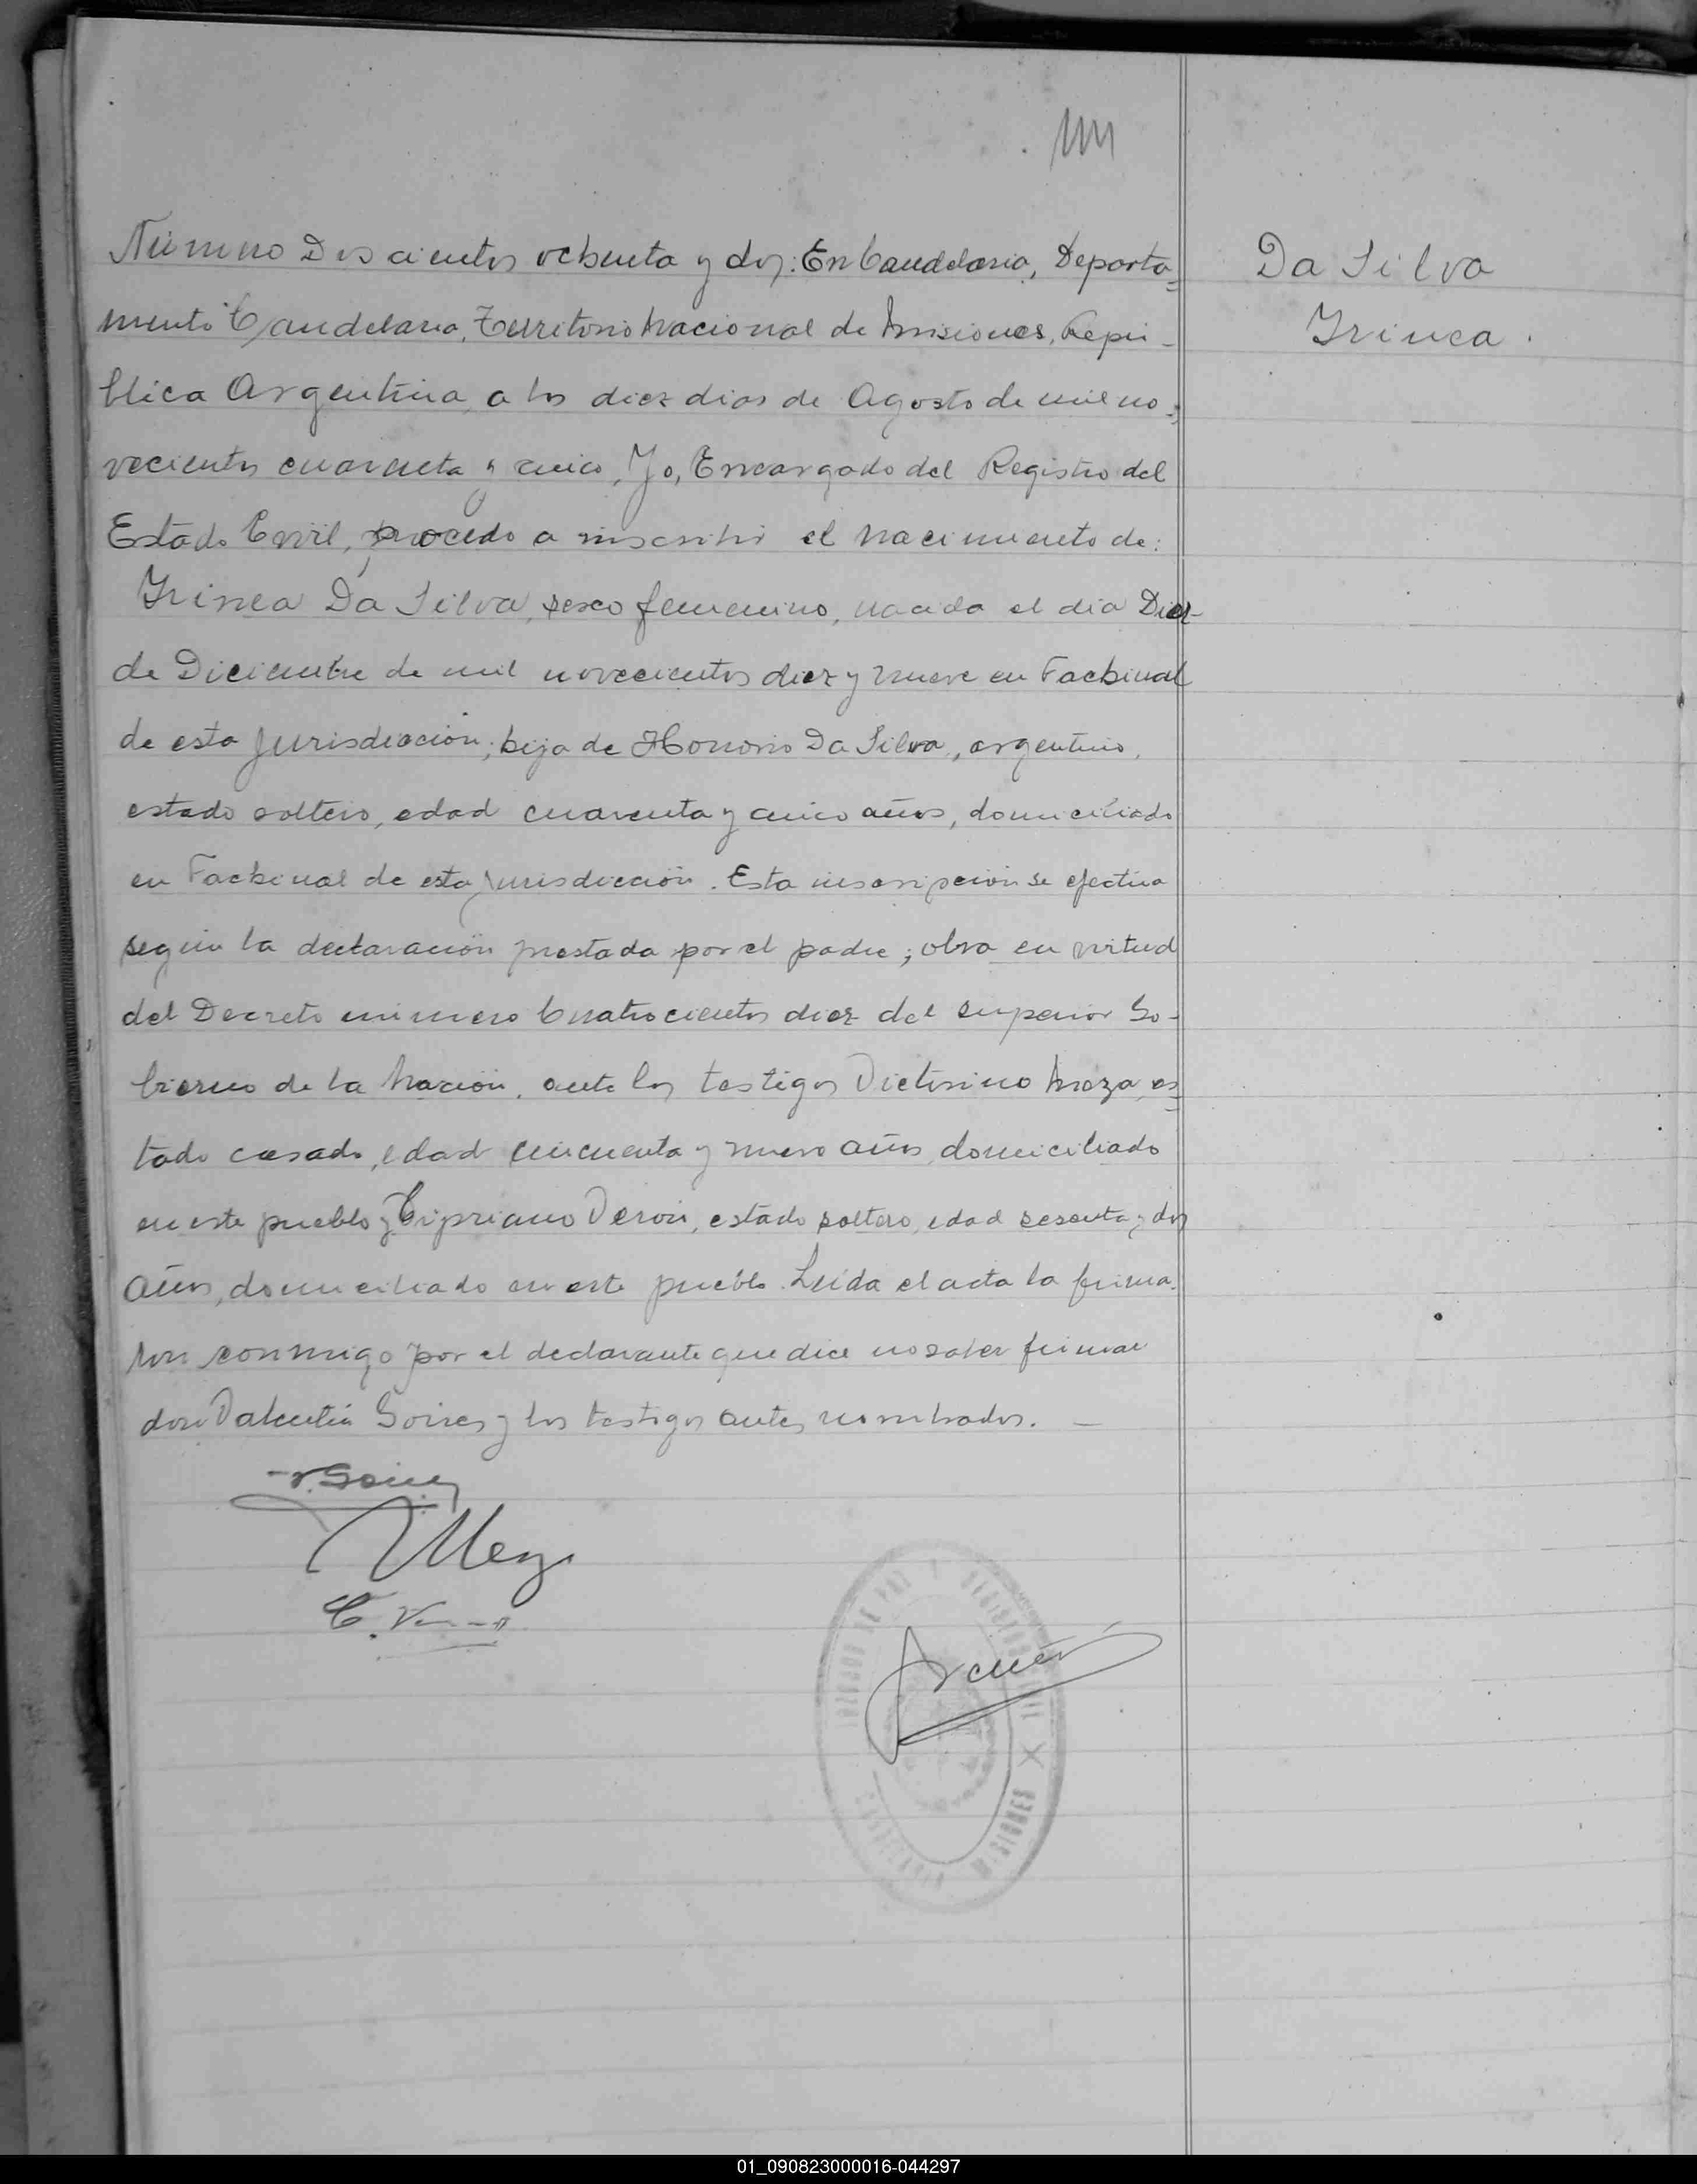 Número Doscientos ochenta y dos: En Candelaria, Departa=
mento Candelaria, Territorio Nacional de Misiones, Repú-
blica Argentina, a los diez dias de Agosto de mil no=
vecientos cuarenta y cinco, Yo, Encargado del Registro del
Estado Civil, procedo a inscribir el nacimiento de:
Irinea Da Silva, sexo femenino, nacida el dia Diez
de Diciembre de mil novecientos diez y nueve en Fachinal
de esta Jurisdicción; hija de Honorio Da Silva, argentino,
estado soltero, edad cuarenta y cinco años, domiciliado
en Fachinal de esta Jurisdicción. Esta inscripción se efectúa
según la declaración prestada por el padre; obra en virtud
del Decreto número Cuatrocientos diez del Superior Go-
bierno de la Nación, ante los testigos Victorino Meza, es=
tado casado, edad cincuenta y nueve años, domiciliado
en este pueblo y Cipriano Verón, estado soltero, edad sesenta y dos
años, domiciliado en este pueblo. Leida el acta la firma-
ron conmigo por el declarante que dice no saber firmar
don Valentín Goires y los testigos antes nombrados. —
Da Silva
Irinea.
V. Goires
VMeza
C. Verón
JUZGADO DE PAZ Y REGISTRO CIVIL
MISIONES
01_090823000016-044297